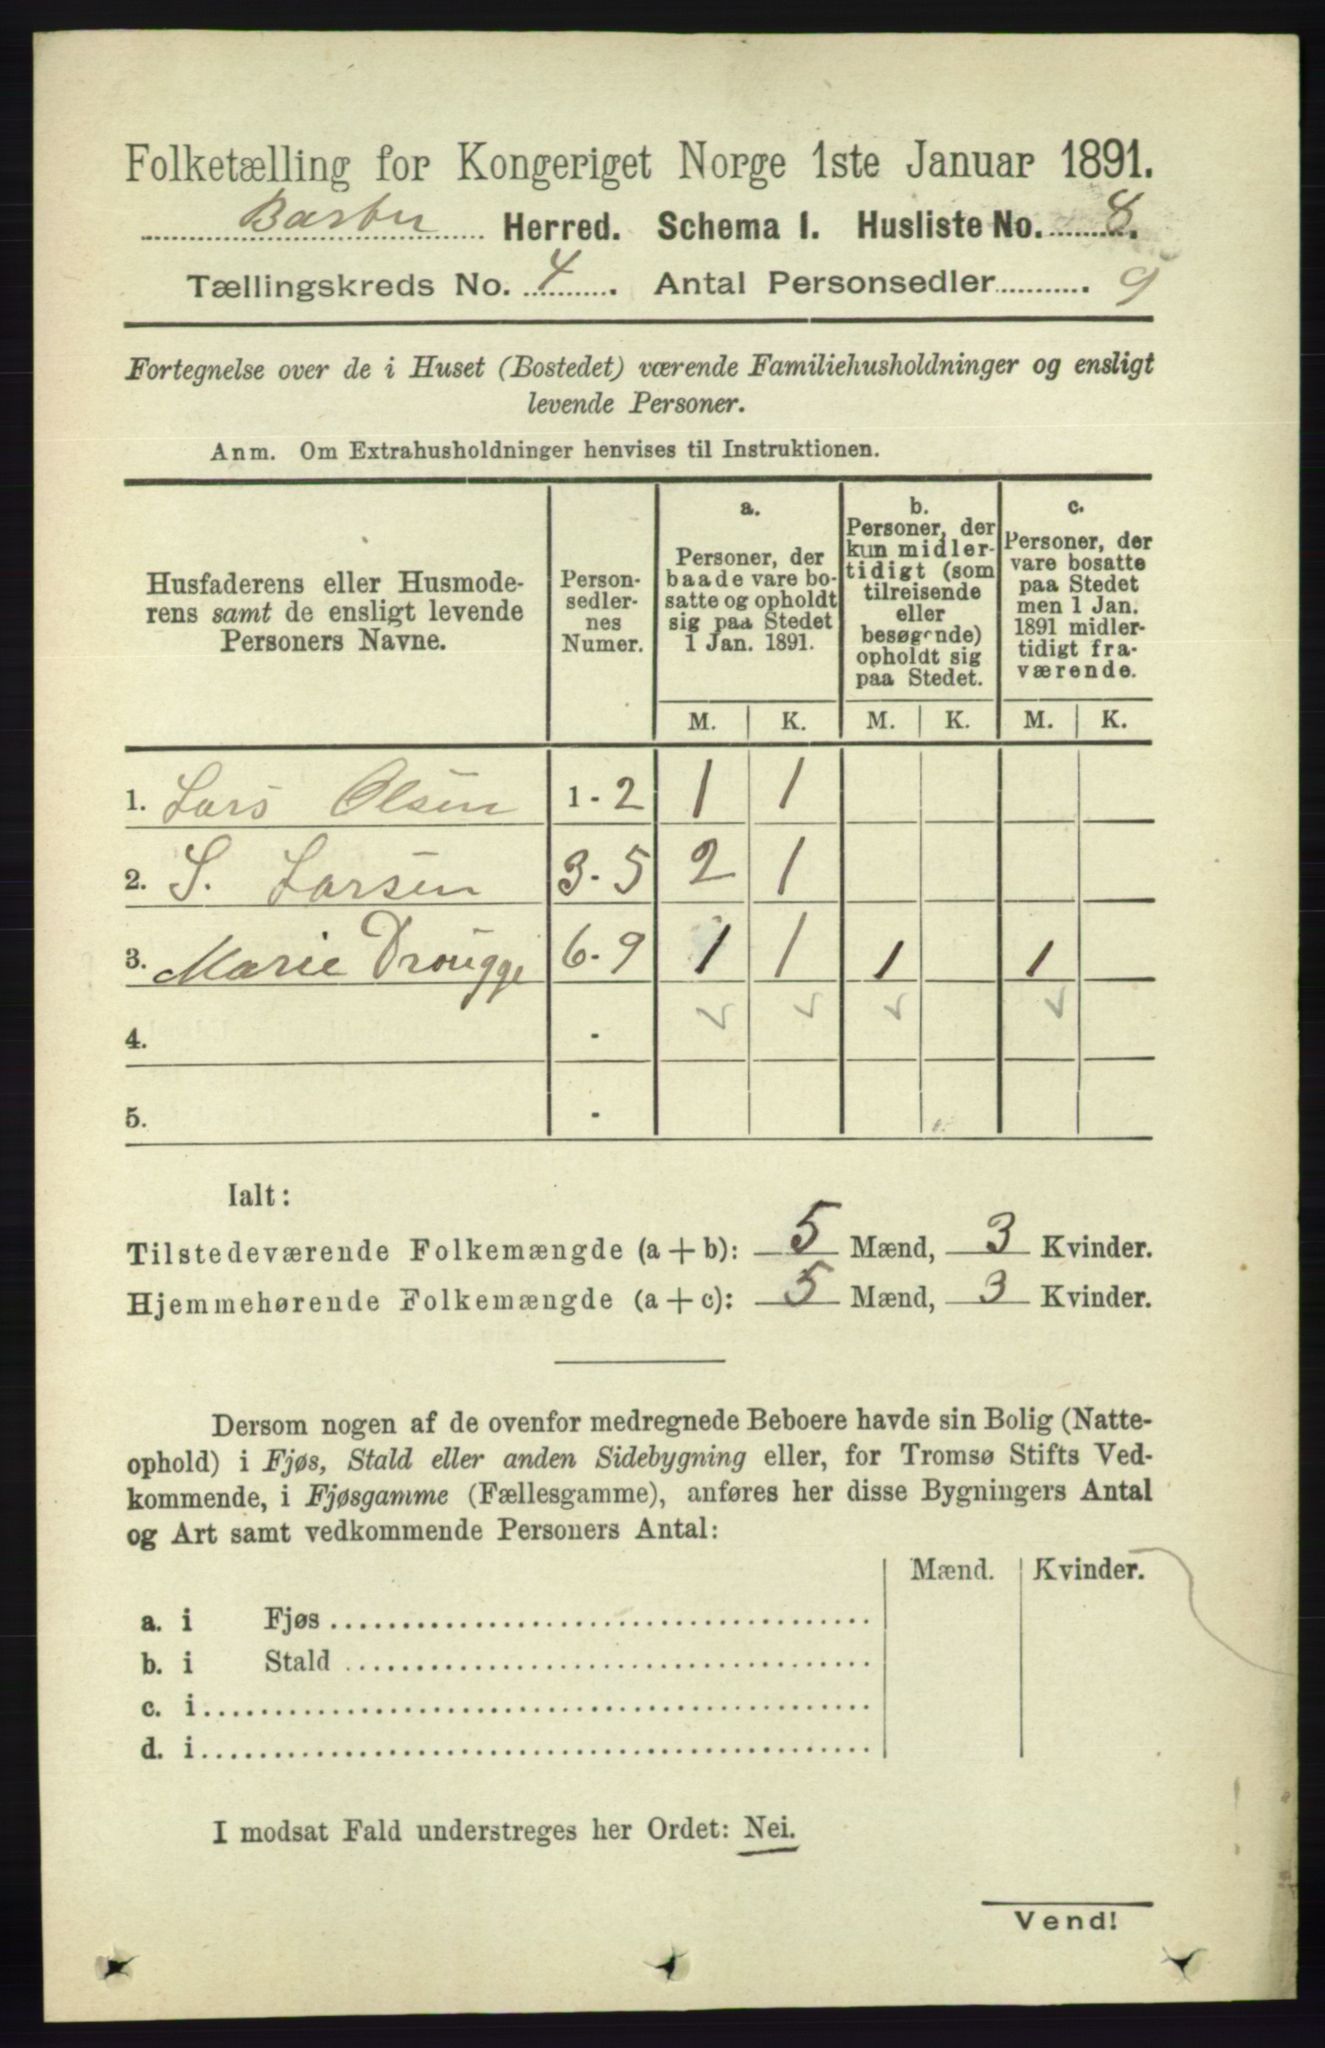 Folketælling for Kongeriget Norge 1ste Januar 1891.
Barbu Herred. Schema 1. Husliste No. 8.
Tællingskreds No. 4. Antal Personsedler 9
Fortegnelse over de i Huset (Bostedet) værende Familiehusholdninger og ensligt
levende Personer.
Anm. Om Extrahusholdninger henvises til Instruktionen.
Husfaderens eller Husmode-
rens samt de ensligt levende
Personers Navne.
Person-
sedler-
nes
Numer.
a.
Personer, der
baade vare bo-
satte og opholdt
sig paa Stedet
1 Jan. 1891.
b.
Personer, der
kun midler-
tidigt (som
tilreisende
eller
besøgende)
opholdt sig
paa Stedet.
c.
Personer, der
vare bosatte
paa Stedet
men 1 Jan.
1891 midler-
tidigt fra-
værende.
M. K. M. K. M. K.
1. Lars Olsen 1-2 1 1
2. S. Larsen 3-5 2 1
3. Marie Drougge 6-9 1 1 1 1
4. -
5. -
Ialt:
Tilstedeværende Folkemængde (a + b): 5 Mænd, 3 Kvinder.
Hjemmehørende Folkemængde (a + c): 5 Mænd, 3 Kvinder.
Dersom nogen af de ovenfor medregnede Beboere havde sin Bolig (Natte-
ophold) i Fjøs, Stald eller anden Sidebygning eller, for Tromsø Stifts Ved-
kommende, i Fjøsgamme (Fællesgamme), anføres her disse Bygningers Antal
og Art samt vedkommende Personers Antal:
Mænd. Kvinder.
a. i Fjøs
b. i Stald
c. i
d. i
I modsat Fald understreges her Ordet: Nei.
Vend!